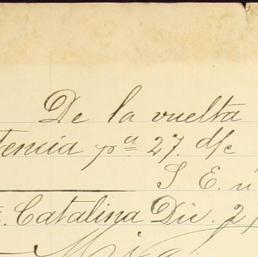 De la vuelta
tencia pª 27. d/c
S E. ú
. Catalina Dic. 27